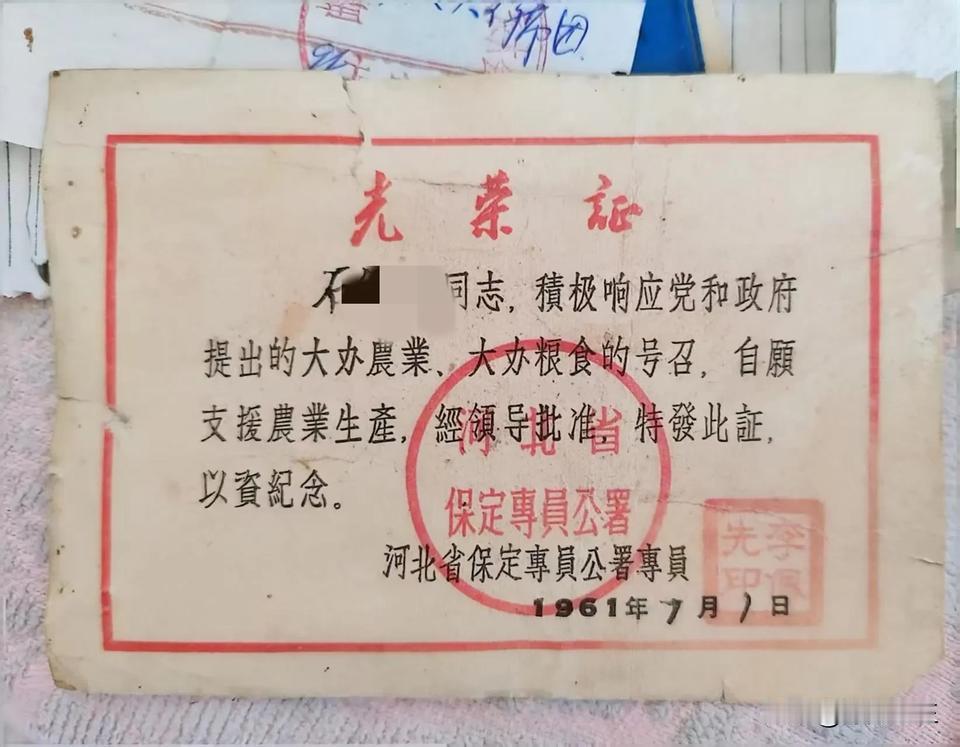 光荣証
同志，積极响应党和政府
提出的大办農業、大办粮食的号召，自願
支援農業生產，經領导批准，特發此証，
以資紀念。
河北省
保定專員公署
河北省保定專員公署專員
李保
先印
1961年7月1日